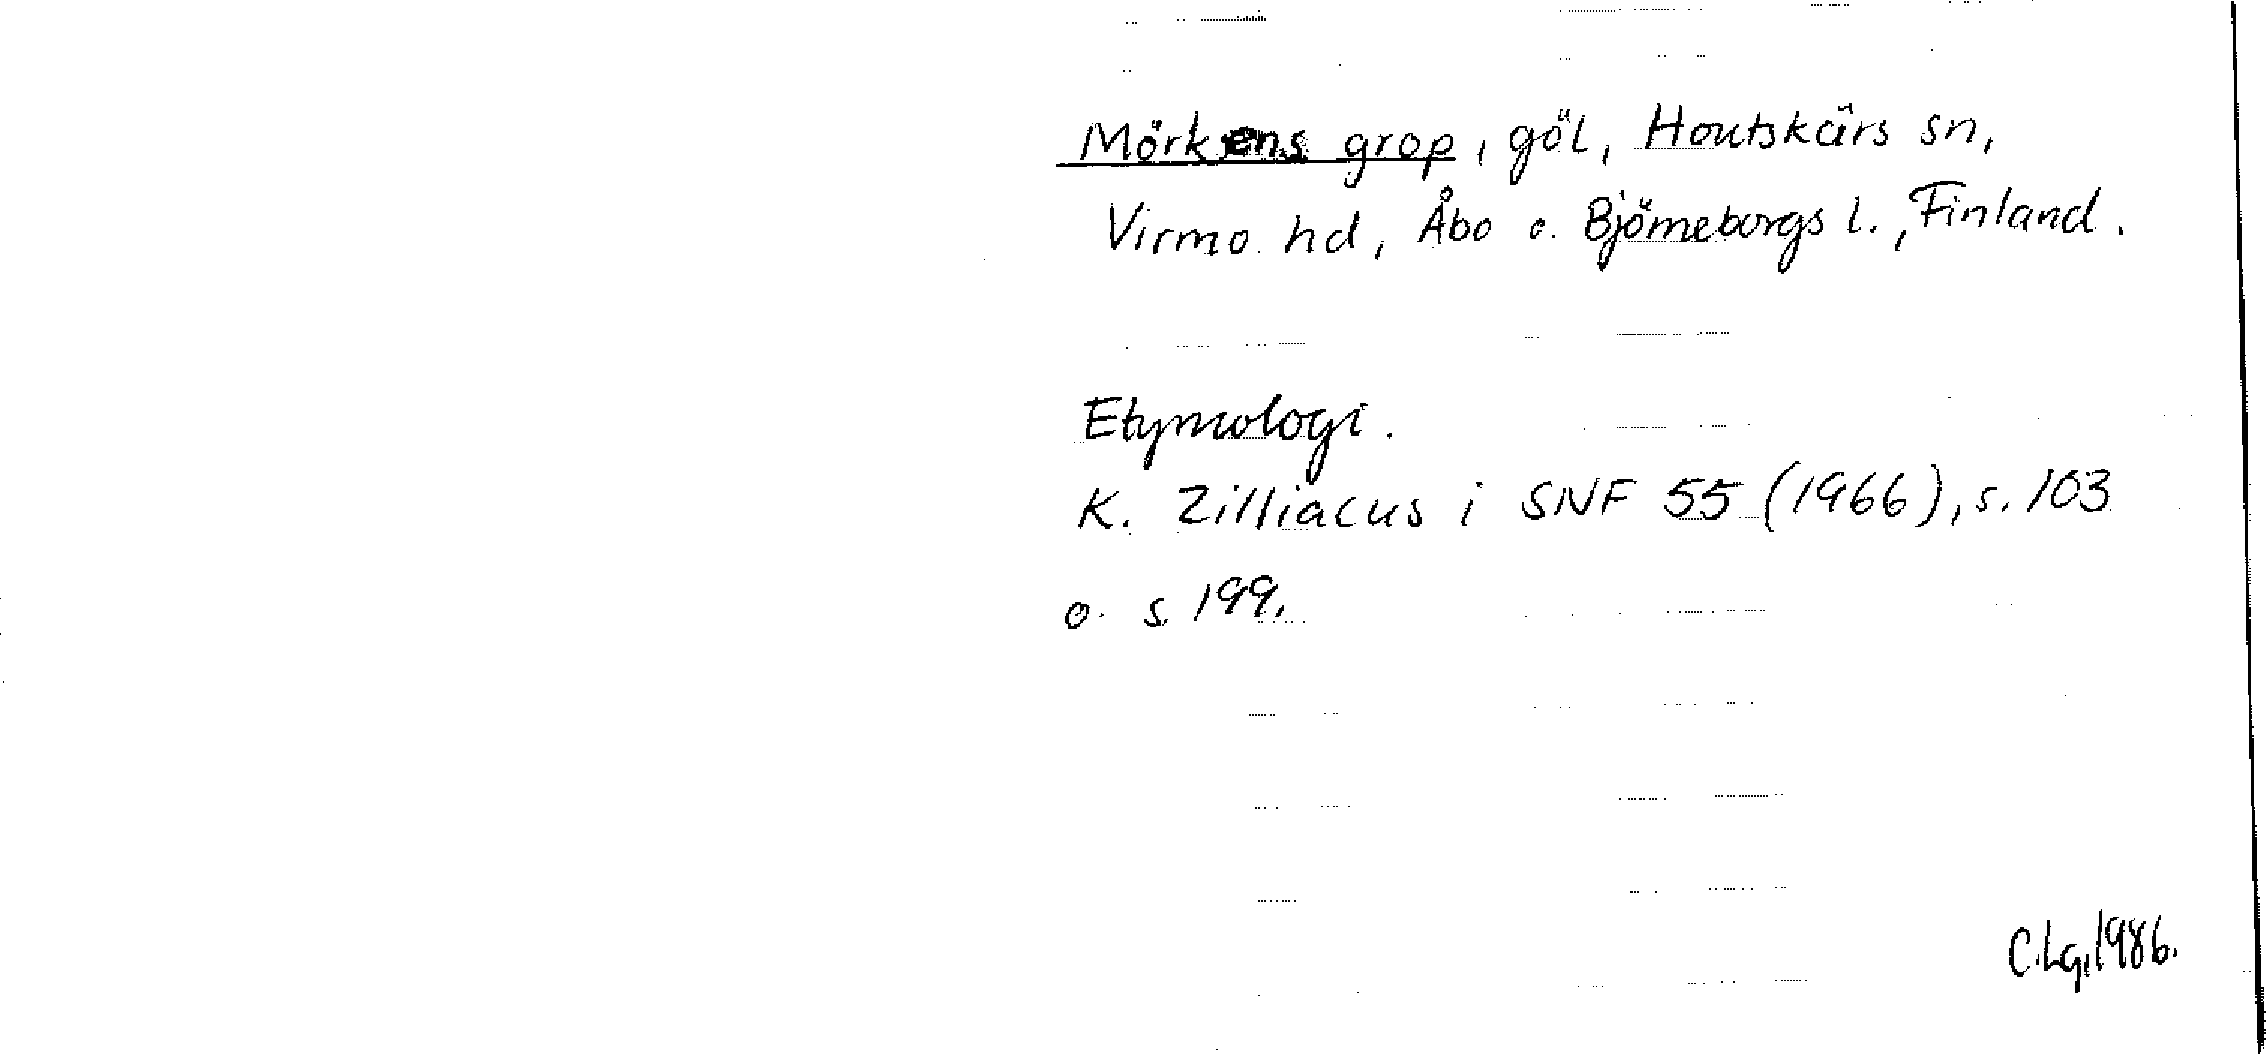 Mörkens grop, göl, Houtskärs sn,
Virmo hd, Åbo o. Björneborgs l., Finland.
Etymologi.
K. Zilliacus i SNF 55 (1966), s. 103
o. s 199.
C.Lg, 1986.